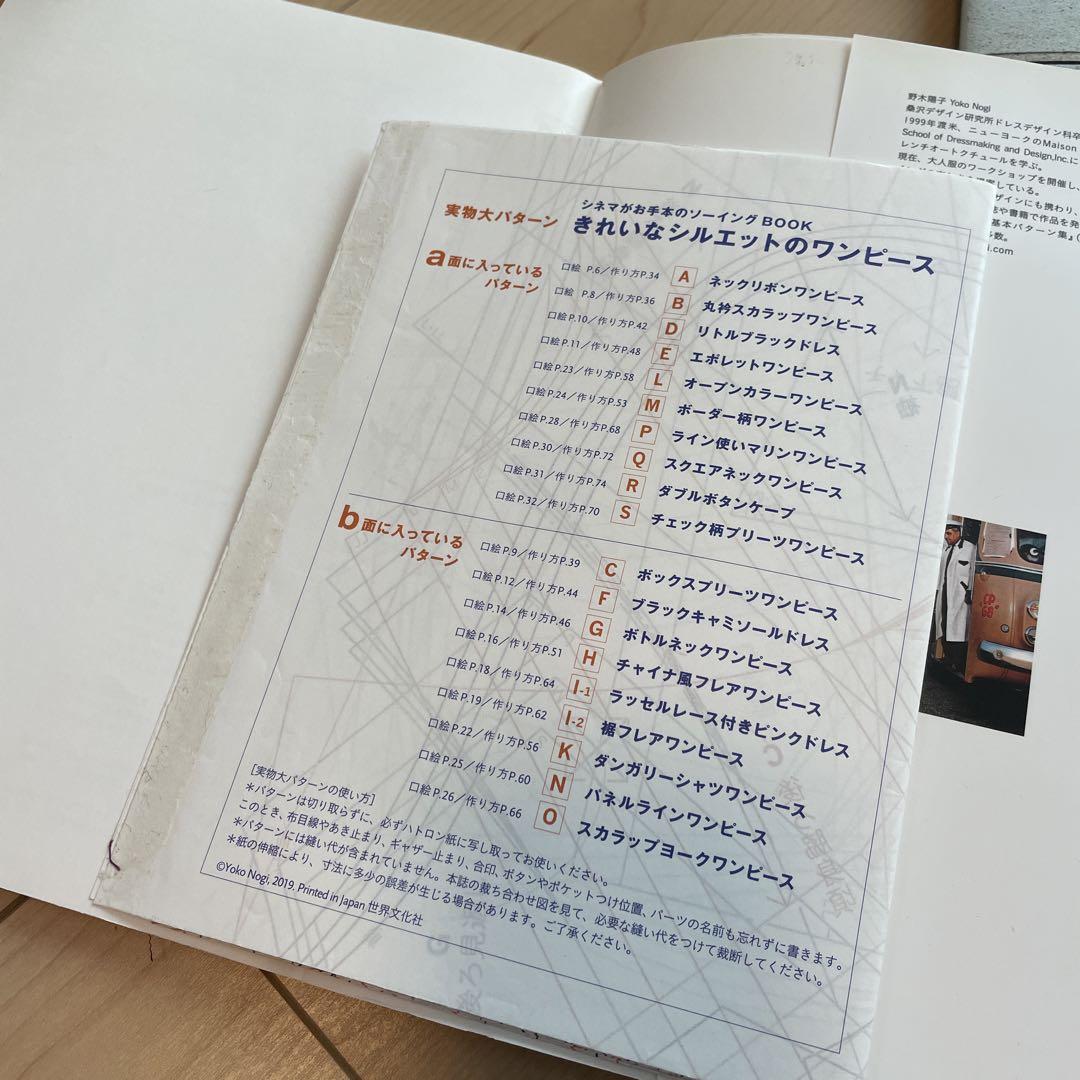 実物大パターン
シネマがお手本のソーイングBOOK
きれいなシルエットのワンピース
a面に入っている
パターン
口絵 P.6／作り方P.34 A ネックリボンワンピース
口絵 P.8／作り方P.36 B 丸衿スカラップワンピース
口絵P.10／作り方P.42 D リトルブラックドレス
口絵P.11／作り方P.48 E エポレットワンピース
口絵P.23／作り方P.58 L オープンカラーワンピース
口絵P.24／作り方P.53 M ボーダー柄ワンピース
口絵P.28／作り方P.68 P ライン使いマリンワンピース
口絵P.30／作り方P.72 Q スクエアネックワンピース
口絵P.31／作り方P.74 R ダブルボタンケープ
口絵P.32／作り方P.70 S チェック柄プリーツワンピース
b面に入っている
パターン
口絵P.9／作り方P.39 C ボックスプリーツワンピース
口絵P.12／作り方P.44 F ブラックキャミソールドレス
口絵P.14／作り方P.46 G ボトルネックワンピース
口絵P.16／作り方P.51 H チャイナ風フレアワンピース
口絵P.18／作り方P.64 I-1 ラッセルレース付きピンクドレス
口絵P.19／作り方P.62 I-2 裾フレアワンピース
口絵P.22／作り方P.56 K ダンガリーシャツワンピース
口絵P.25／作り方P.60 N パネルラインワンピース
口絵P.26／作り方P.66 O スカラップヨークワンピース
［実物大パターンの使い方］
＊パターンは切り取らずに、必ずハトロン紙に写し取ってお使いください。
このとき、布目線やあき止まり、ギャザー止まり、合印、ボタンやポケットつけ位置、パーツの名前も忘れずに書きます。
＊パターンには縫い代が含まれていません。本誌の裁ち合わせ図を見て、必要な縫い代をつけて裁断してください。
＊紙の伸縮により、寸法に多少の誤差が生じる場合があります。ご了承ください。
©Yoko Nogi, 2019, Printed in Japan 世界文化社
野木陽子 Yoko Nogi
桑沢デザイン研究所ドレスデザイン科卒
1999年渡米、ニューヨークのMaison
School of Dressmaking and Design,Inc.に
レンチオートクチュールを学ぶ。
現在、大人服のワークショップを開催し、
している。
ザインにも携わり、
誌や書籍で作品を発
基本パターン集』(
多数。
i.com